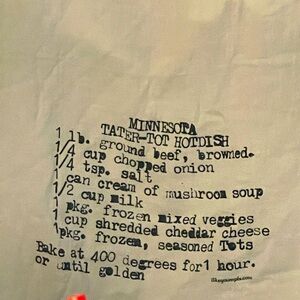 MINNESOTA
TATER-TOT HOTDISH
1 lb. ground beef, browned.
1/4 cup chopped onion
1/4 tsp. salt
1 can cream of mushroom soup
1/2 cup milk
1 pkg. frozen mixed veggies
1 cup shredded cheddar cheese
1pkg. frozen, seasoned Tots
Bake at 400 degrees for 1 hour.
or until golden